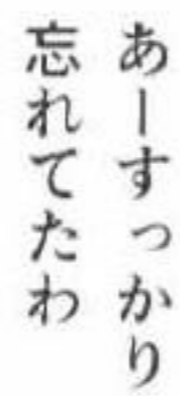 あーすっかり
忘れてたわ